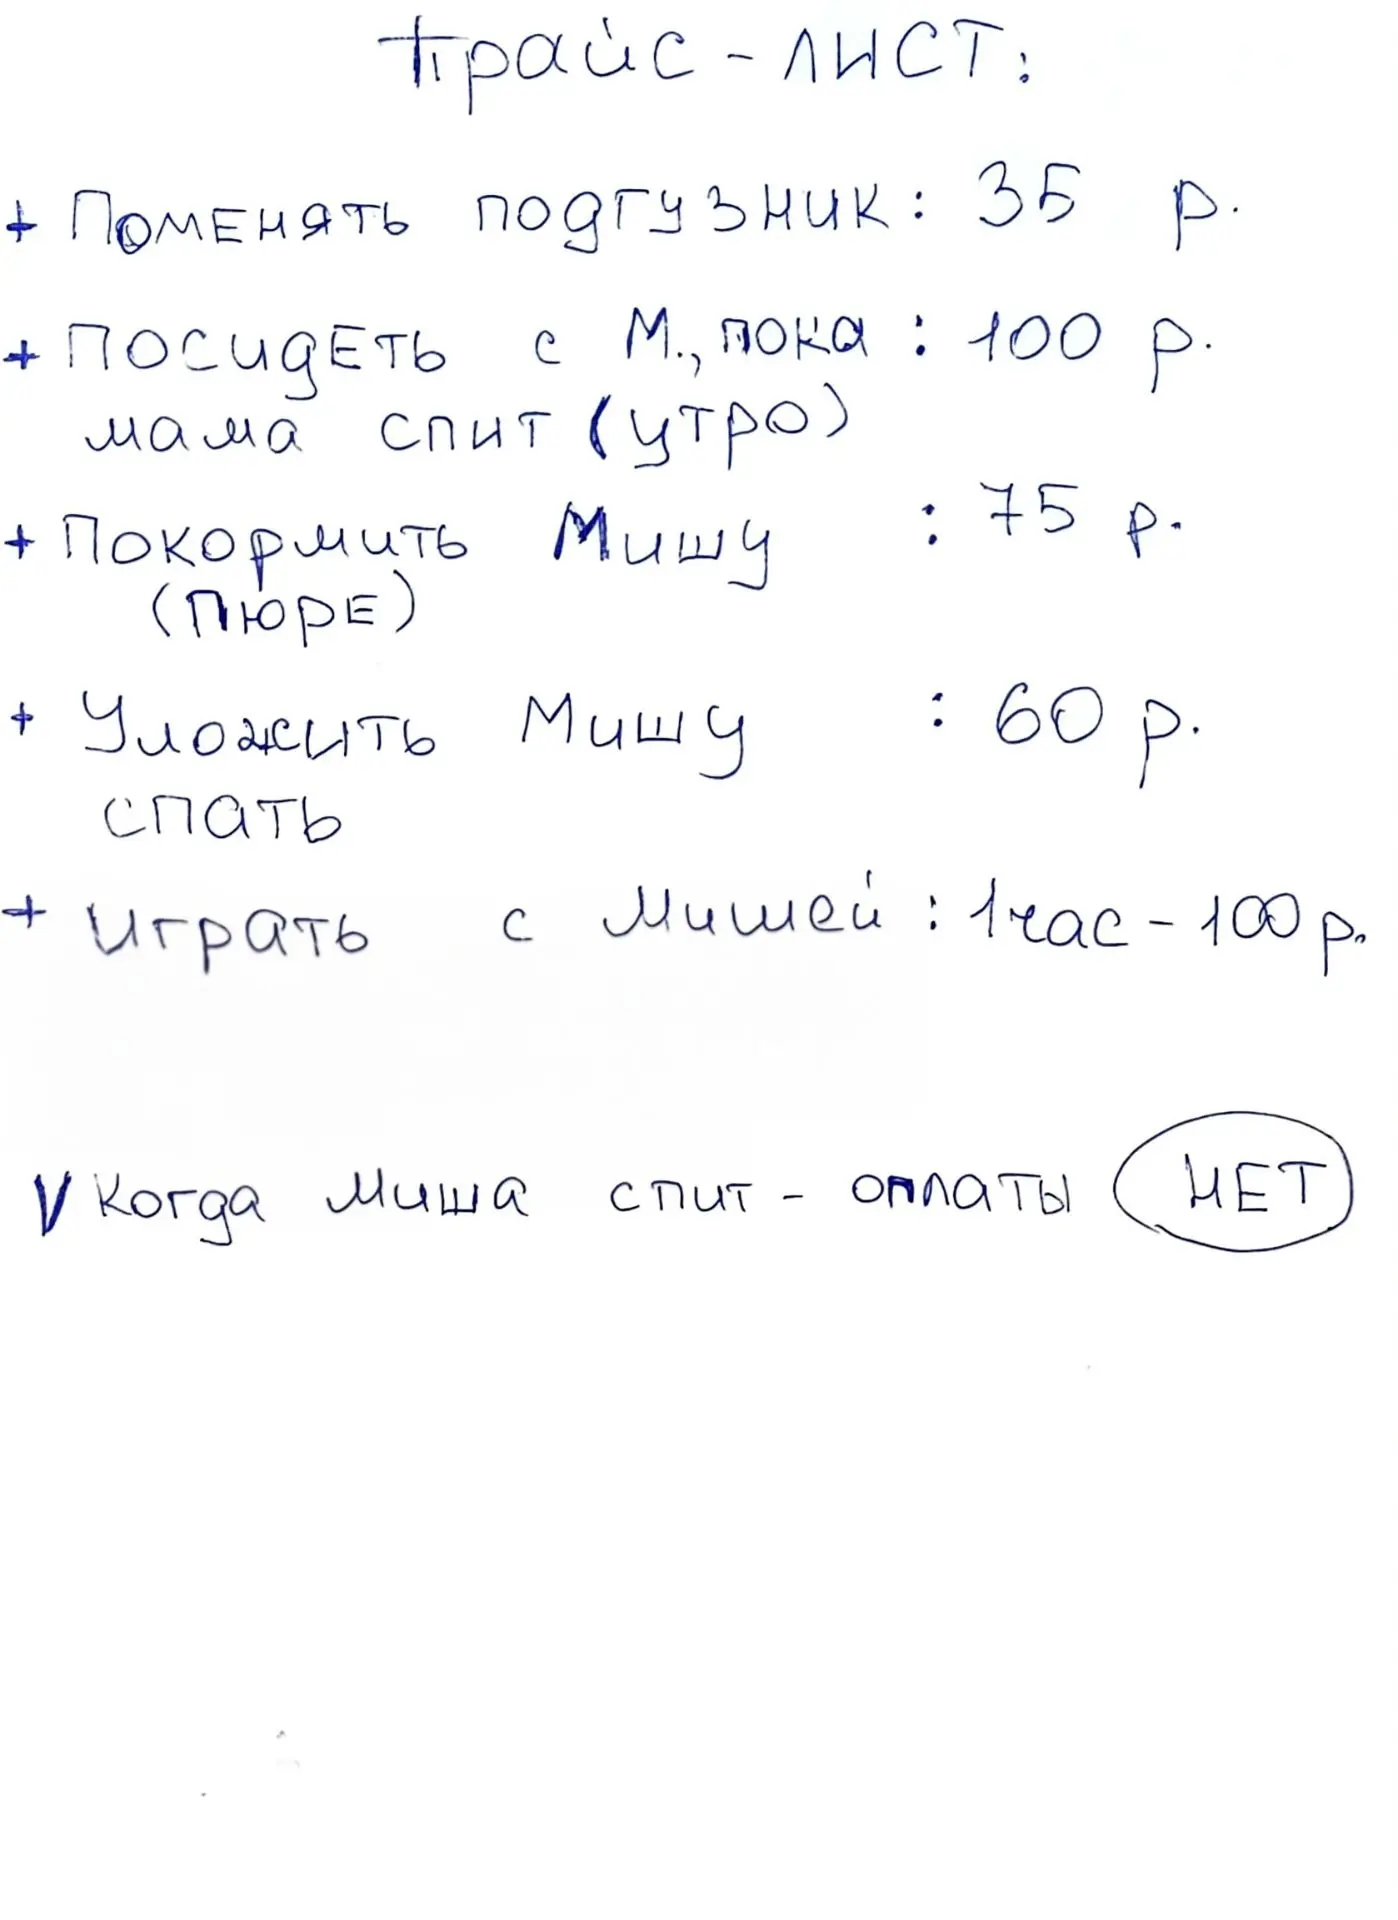 Прайс - лист:
+ Поменять подгузник: 35 р.
+ Посидеть с М., пока : 100 р.
мама спит (утро)
+ Покормить Мишу : 75 р.
(Пюре)
+ Уложить Мишу : 60 р.
спать
+ Играть с Мишей : 1 час - 100 р.
V Когда Миша спит - оплаты НЕТ